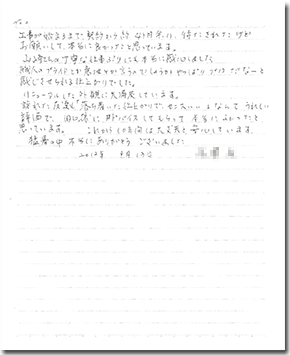 No.
工事が始まるまで、契約から約4ヶ月半は、待たされたけど
お願いして、本当に良かったと思っています。
山崎さんの丁寧な仕事ぶりにも本当に感心しました。
職人のプライドとか意地とか言うのでしょうかやっぱりプロだなーと
感じさせられる仕上がりでした。
リニューアルした外観に大満足しています。
訪れた友達も「落ち着いた仕上がりで、センスいいよなんて」うれしい
評価で、田口様にアドバイスしてもらって本当によかったと
思っています。これから10年間は大丈夫と安心しています。
猛暑の中本当にありがとうございました
2012年 9月